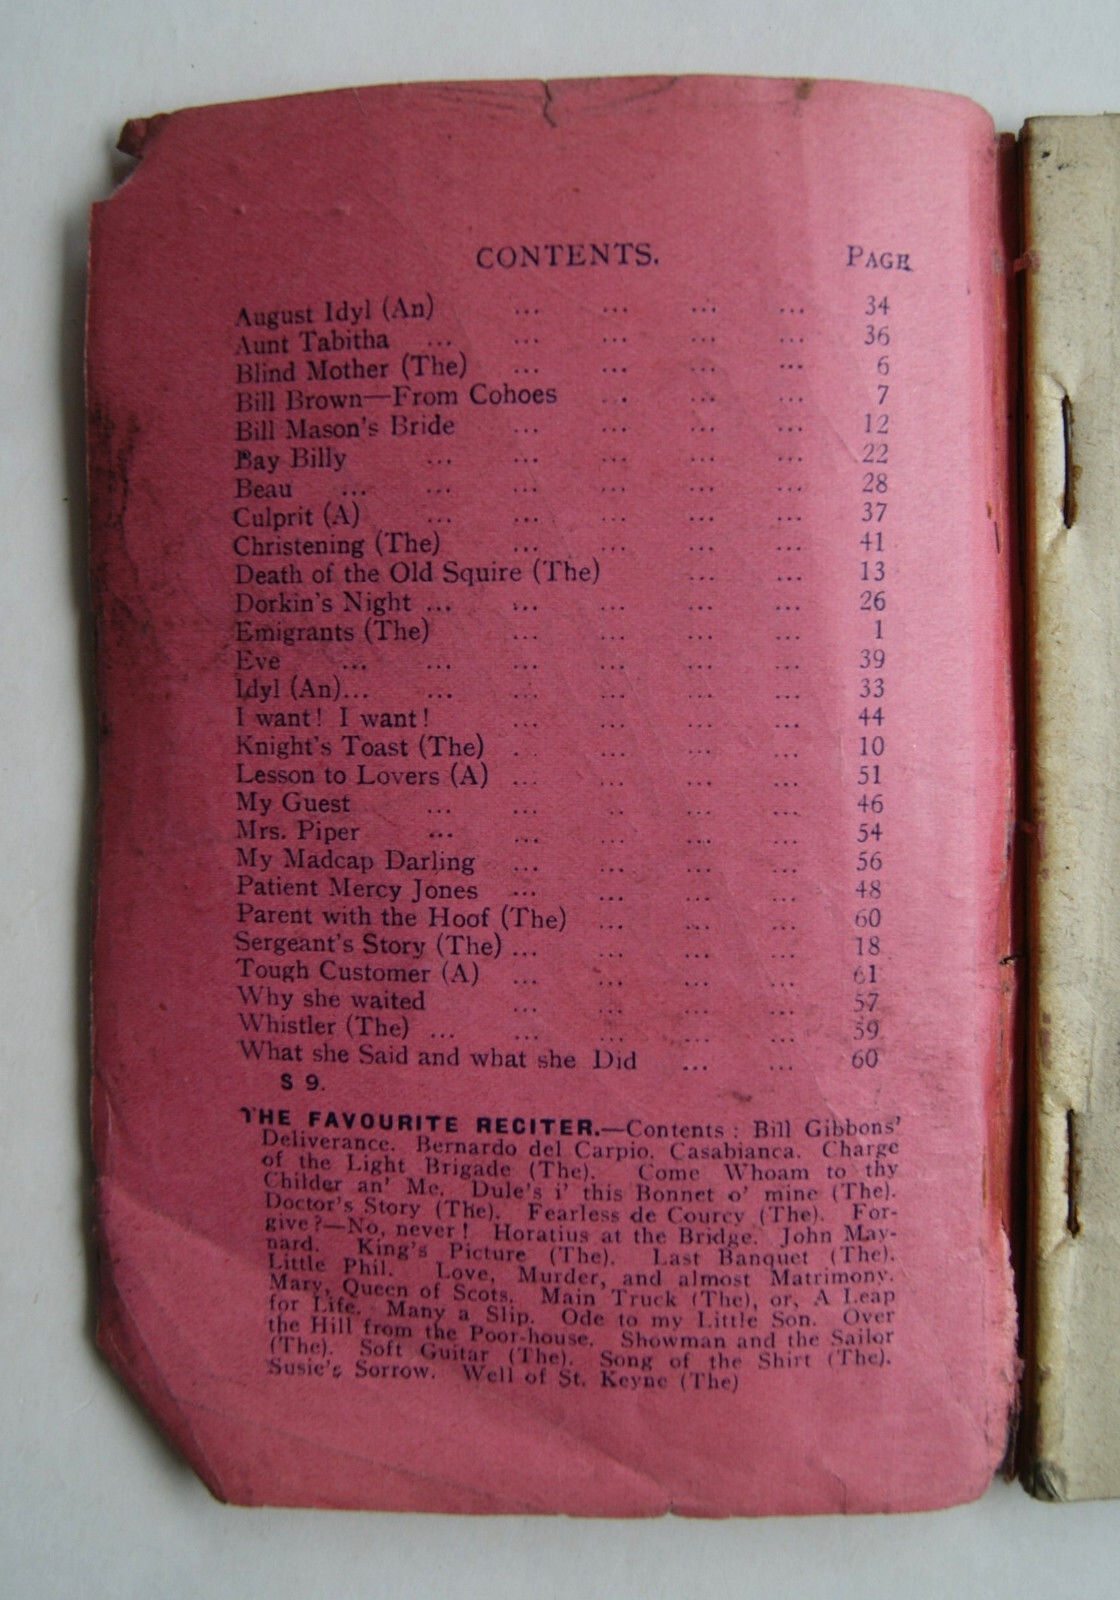 CONTENTS. PAGE
August Idyl (An) ... ... ... ... 34
Aunt Tabitha ... ... ... ... ... 36
Blind Mother (The) ... ... ... ... 6
Bill Brown—From Cohoes ... ... ... 7
Bill Mason's Bride ... ... ... ... 12
Bay Billy ... ... ... ... ... 22
Beau ... ... ... ... ... ... 28
Culprit (A) ... ... ... ... ... 37
Christening (The) ... ... ... ... 41
Death of the Old Squire (The) ... ... 13
Dorkin's Night ... ... ... ... ... 26
Emigrants (The) ... ... ... ... 1
Eve ... ... ... ... ... ... 39
Idyl (An)... ... ... ... ... ... 33
I want! I want! ... ... ... ... 44
Knight's Toast (The) ... ... ... ... 10
Lesson to Lovers (A) ... ... ... ... 51
My Guest ... ... ... ... ... 46
Mrs. Piper ... ... ... ... ... 54
My Madcap Darling ... ... ... ... 56
Patient Mercy Jones ... ... ... ... 48
Parent with the Hoof (The) ... ... ... 60
Sergeant's Story (The) ... ... ... ... 18
Tough Customer (A) ... ... ... ... 61
Why she waited ... ... ... ... 57
Whistler (The) ... ... ... ... ... 59
What she Said and what she Did ... ... 60
S 9.
THE FAVOURITE RECITER.—Contents: Bill Gibbons'
Deliverance. Bernardo del Carpio. Casabianca. Charge
of the Light Brigade (The). Come Whoam to thy
Childer an' Me. Dule's i' this Bonnet o' mine (The).
Doctor's Story (The). Fearless de Courcy (The). For-
give?—No, never! Horatius at the Bridge. John May-
nard. King's Picture (The). Last Banquet (The).
Little Phil. Love, Murder, and almost Matrimony.
Mary, Queen of Scots. Main Truck (The), or, A Leap
for Life. Many a Slip. Ode to my Little Son. Over
the Hill from the Poor-house. Showman and the Sailor
(The). Soft Guitar (The). Song of the Shirt (The).
Susie's Sorrow. Well of St. Keyne (The)